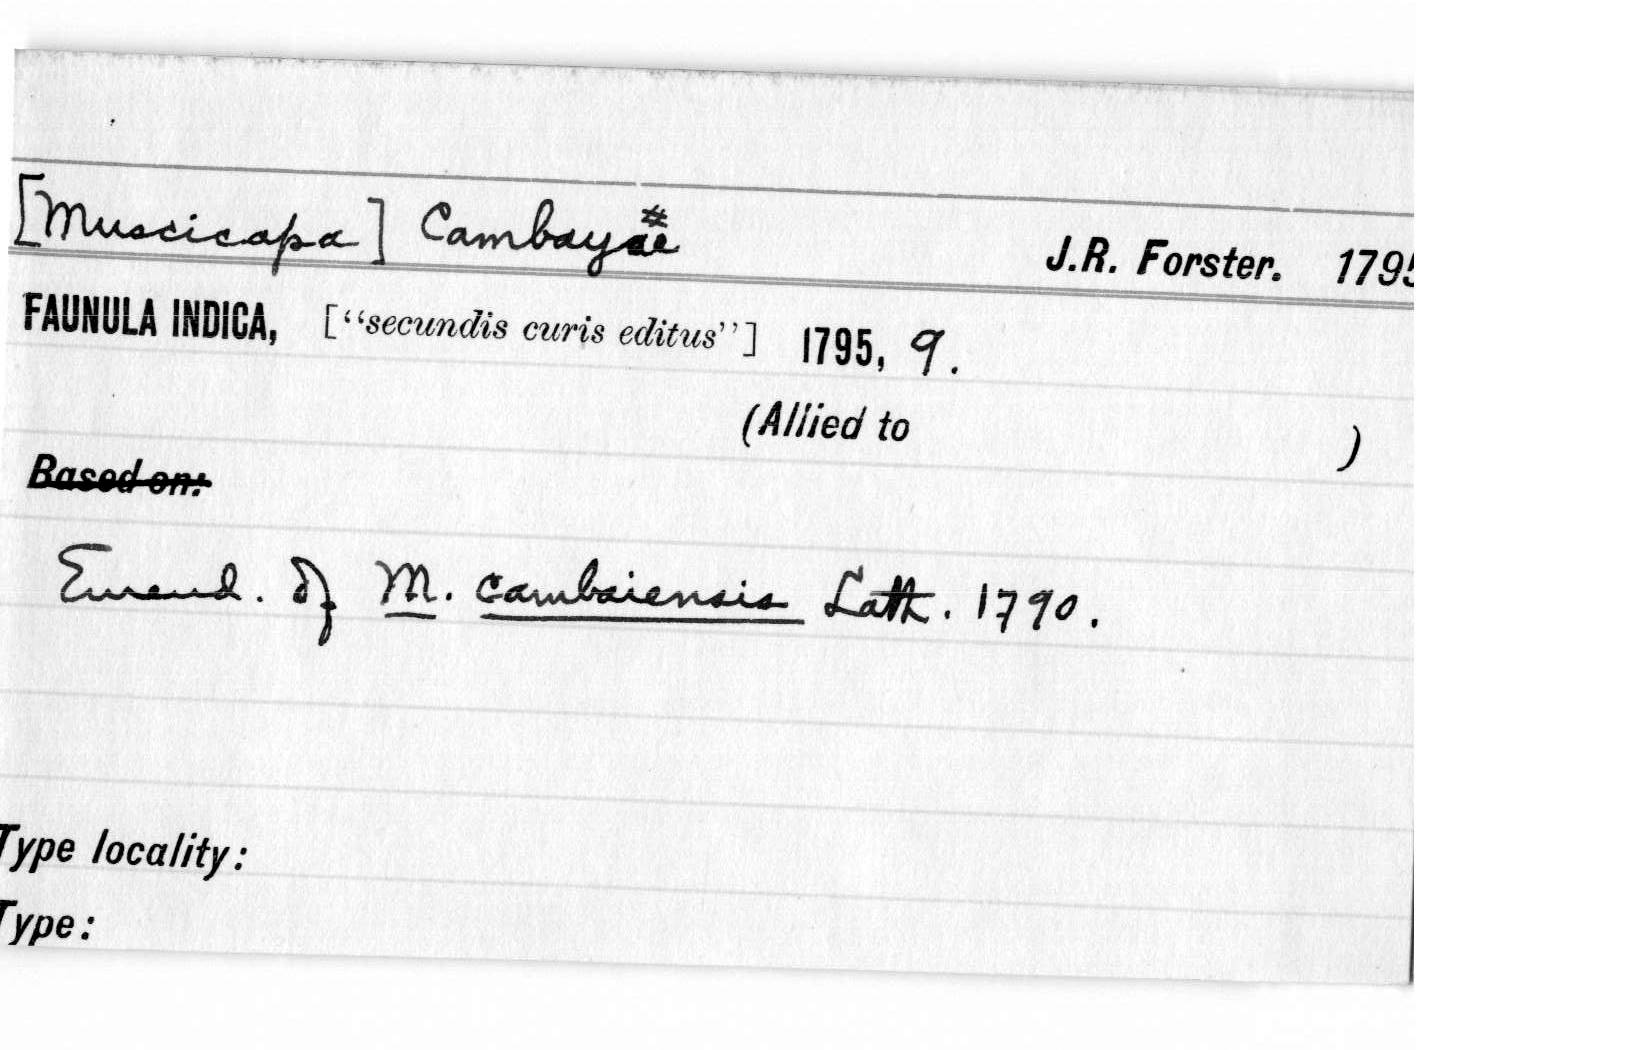 [Muscicapa] Cambayae # J.R. Forster. 1795
FAUNULA INDICA, ["secundis curis editus"] 1795, 9.
(Allied to )
Based on:
Emend. of M. cambaiensis Lath. 1790.
Type locality:
Type: